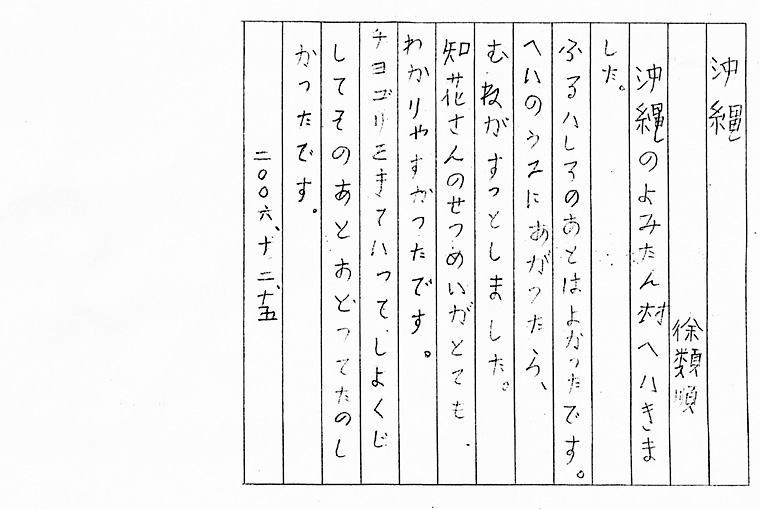 沖縄
徐類順
沖縄のよみたん村へいきま
した。
ふるいしろのあとはよかったです。
へいのうえにあがったら、
むねがすっとしました。
知花さんのせつめいがとても、
わかりやすかったです。
チョゴリをきていって、しょくじ
してそのあとおどってたのし
かったです。
二〇〇六、十二、十五